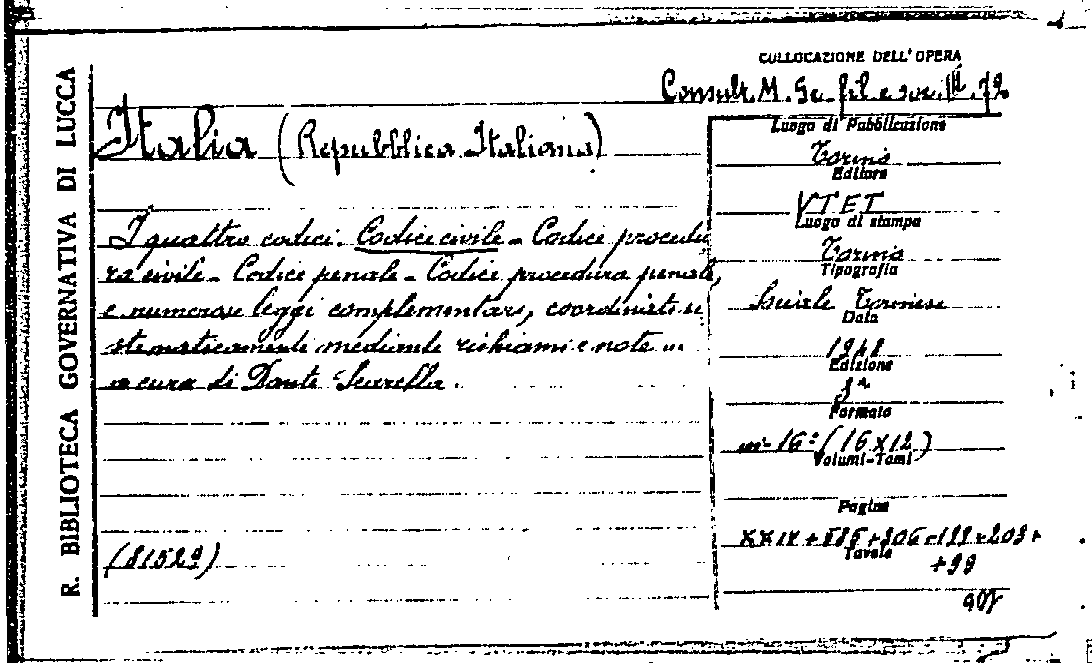 R. BIBLIOTECA GOVERNATIVA DI LUCCA
COLLOCAZIONE DELL'OPERA
Consult. M. Sc. fil. e soc. III. 72
Italia (Repubblica Italiana)
I quattro codici. Codice civile - Codice procedu
ra civile - Codice penale - Codice procedura penale,
e numerose leggi complementari, coordinati si
stematicamente mediante richiami e note ...
a cura di Dante
(81529)
Luogo di Pubblicazione
Torino
Editore
VTET
Luogo di stampa
Torino
Tipografia
Sociale Torinese
Data
1948
Edizione
Formato
in-16° (16x12)
Volumi-Tomi
Pagine
Tavole
+99